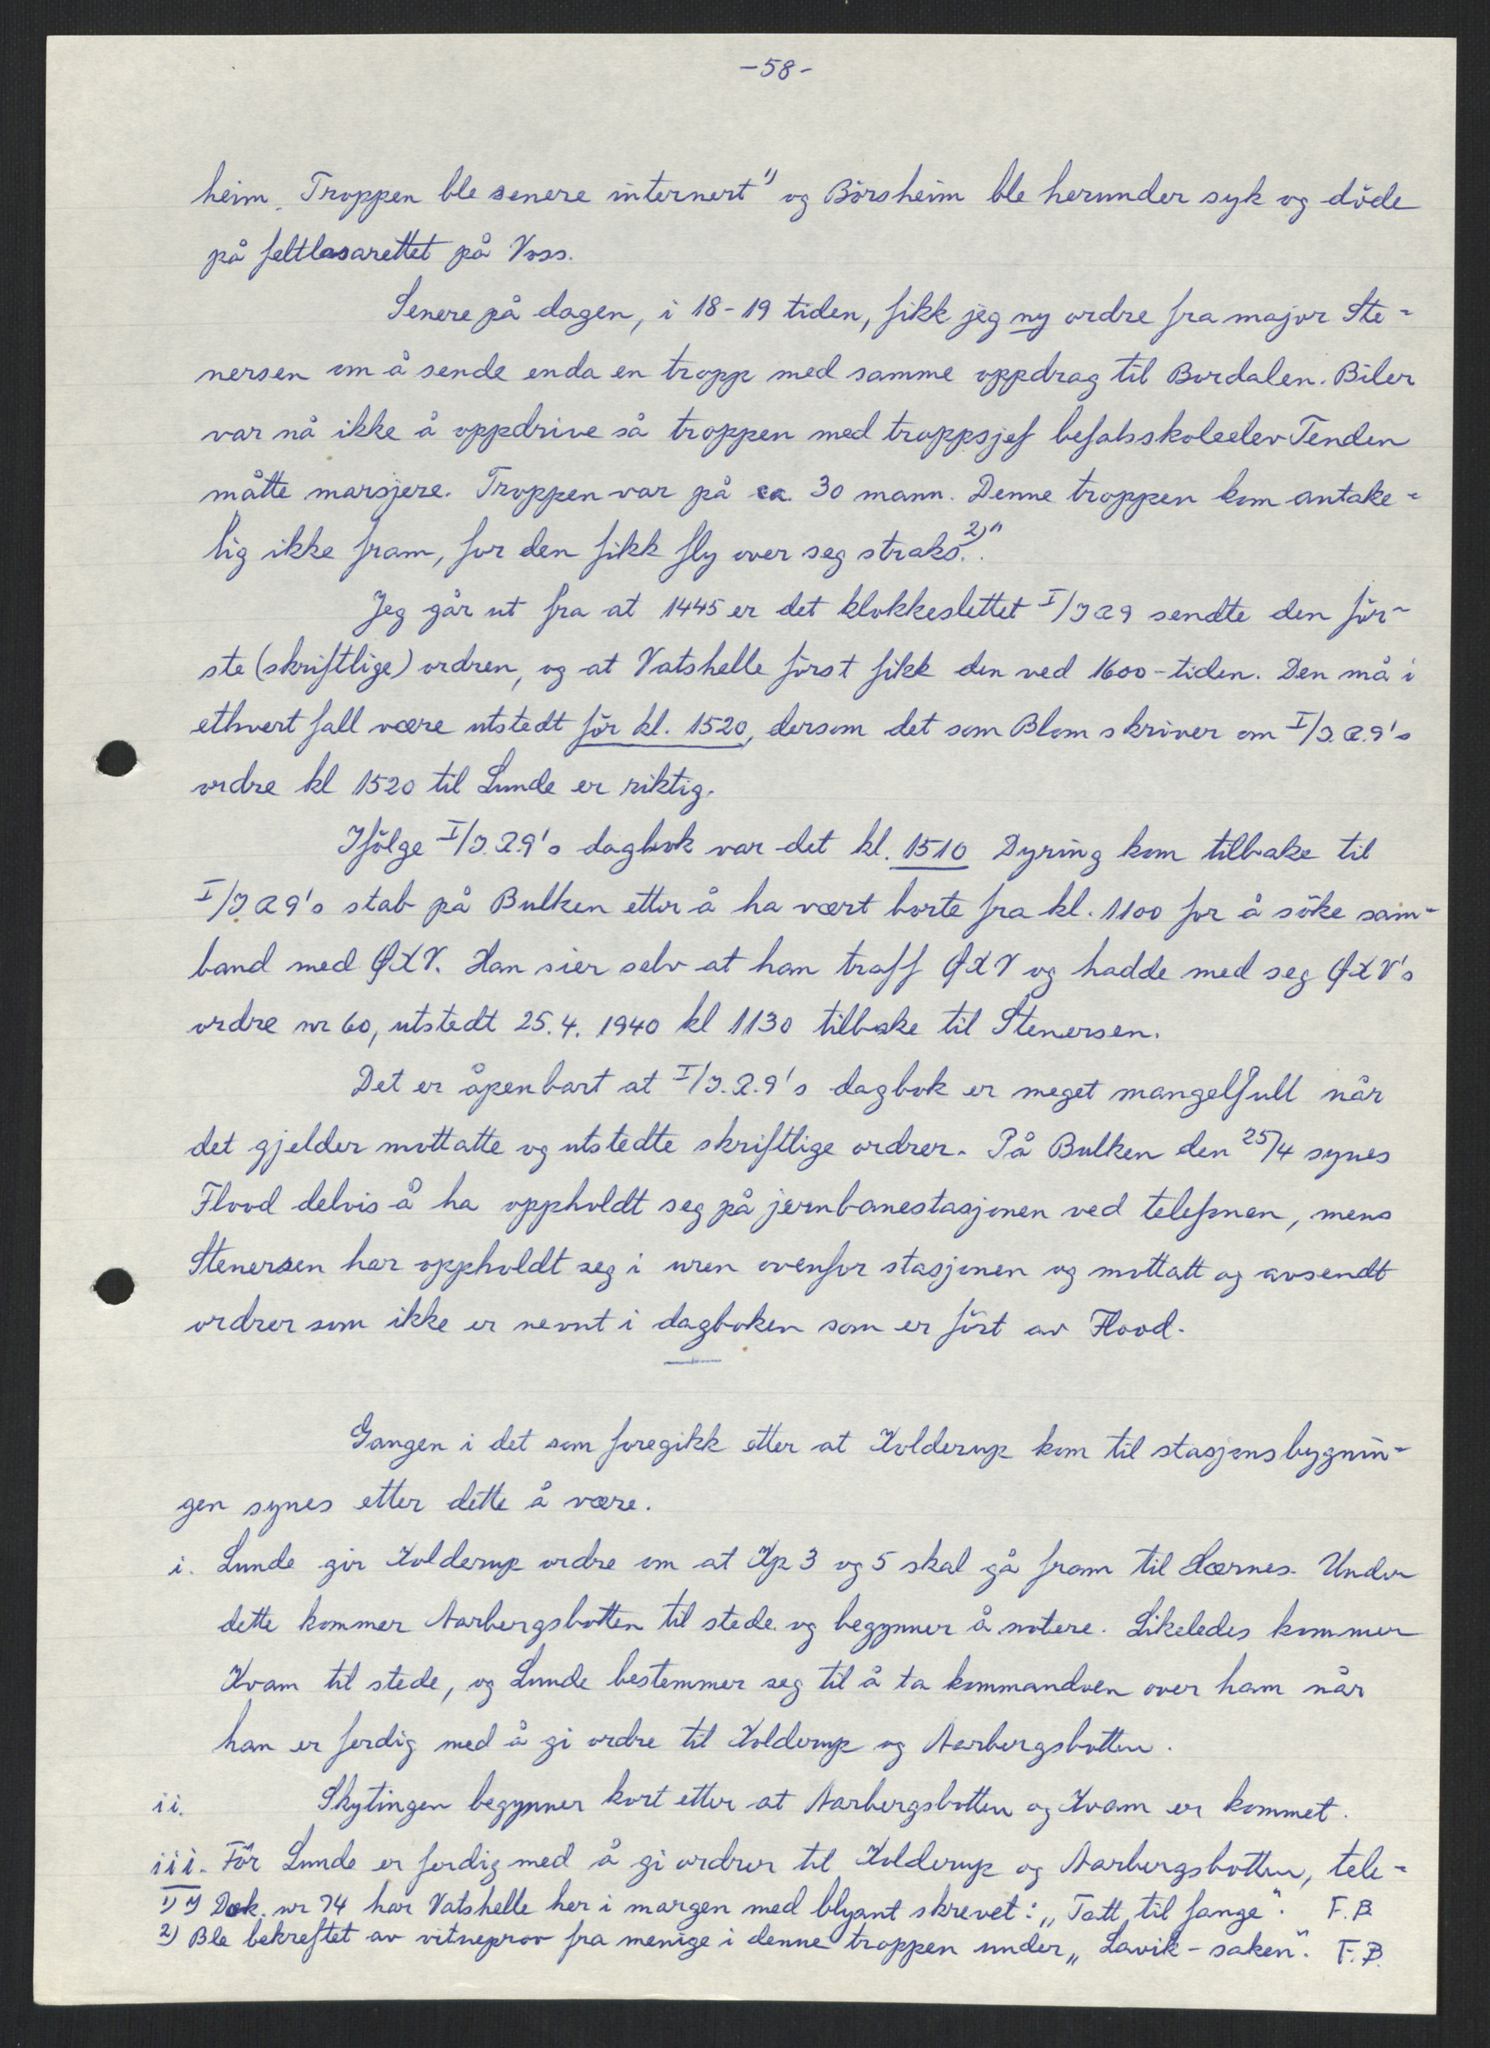 -58-
heim. Troppen ble senere internert 1) og Börsheim ble herunder syk og döde
på feltlasarettet på Voss.
Senere på dagen, i 18-19 tiden, fikk jeg ny ordre fra major Ste-
nersen om å sende enda en tropp med samme oppdrag til Bordalen. Biler
var nå ikke å oppdrive så troppen med troppsjef befalsskoleelev Tenden
måtte marsjere. Troppen var på ca. 30 mann. Denne troppen kom antake-
lig ikke fram, for den fikk fly over seg straks. 2)"
Jeg går ut fra at 1445 er det klokkeslettet I/J R 9 sendte denför-
ste (skriftlige) ordren, og at Vatshelle först fikk den ved 1600-tiden. Den må i
ethvert fall være utstedt för kl. 1520, dersom det som Blom skriver om I/J.R.9's
ordre kl 1520 til Lunde er riktig.
Ifölge I/J.R.9's dagbok var det kl. 1510 Dyring kom tilbake til
I/J R 9's stab på Bulken etter å ha vært borte fra kl. 1100 for å söke sam-
band med ØKV. Han sier selv at han traff ØKV og hadde med seg ØKV's
ordre nr 60, utstedt 25.4.1940 kl 1130 tilbake til Stenersen.
Det er åpenbart at I/J.R.9's dagbok er meget mangelfull når
det gjelder mottatte og utstedte skriftlige ordrer. På Bulken den 25/4 synes
Flood delvis å ha oppholdt seg på jernbanestasjonen ved telefonen, mens
Stenersen har oppholdt seg i uren ovenfor stasjonen og mottatt og avsendt
ordrer som ikke er nevnt i dagboken som er fört av Flood.
Gangen i det som foregikk etter at Kolderup kom til stasjonsbygnin-
gen synes etter dette å være.
i. Lunde gir Kolderup ordre om at Kp 3 og 5 skal gå fram til Hærnes. Under
dette kommer Aarbergsbotten til stede og begynner å notere. Likeledes kommer
Kvam til stede, og Lunde bestemmer seg til å ta kommandoen over ham når
han er ferdig med å gi ordre til Kolderup og Aarbergsbotten.
ii. Skytingen begynner kort etter at Aarbergsbotten og Kvam er kommet.
iii. För Lunde er ferdig med å gi ordrer til Kolderup og Aarbergsbotten, tele-
1) I Dok. nr 74 har Vatshelle her i margen med blyant skrevet: „Tatt til fange". F.B
2) Ble bekreftet av vitneprov fra menige i denne troppen under „Lavik-saken". F.B.